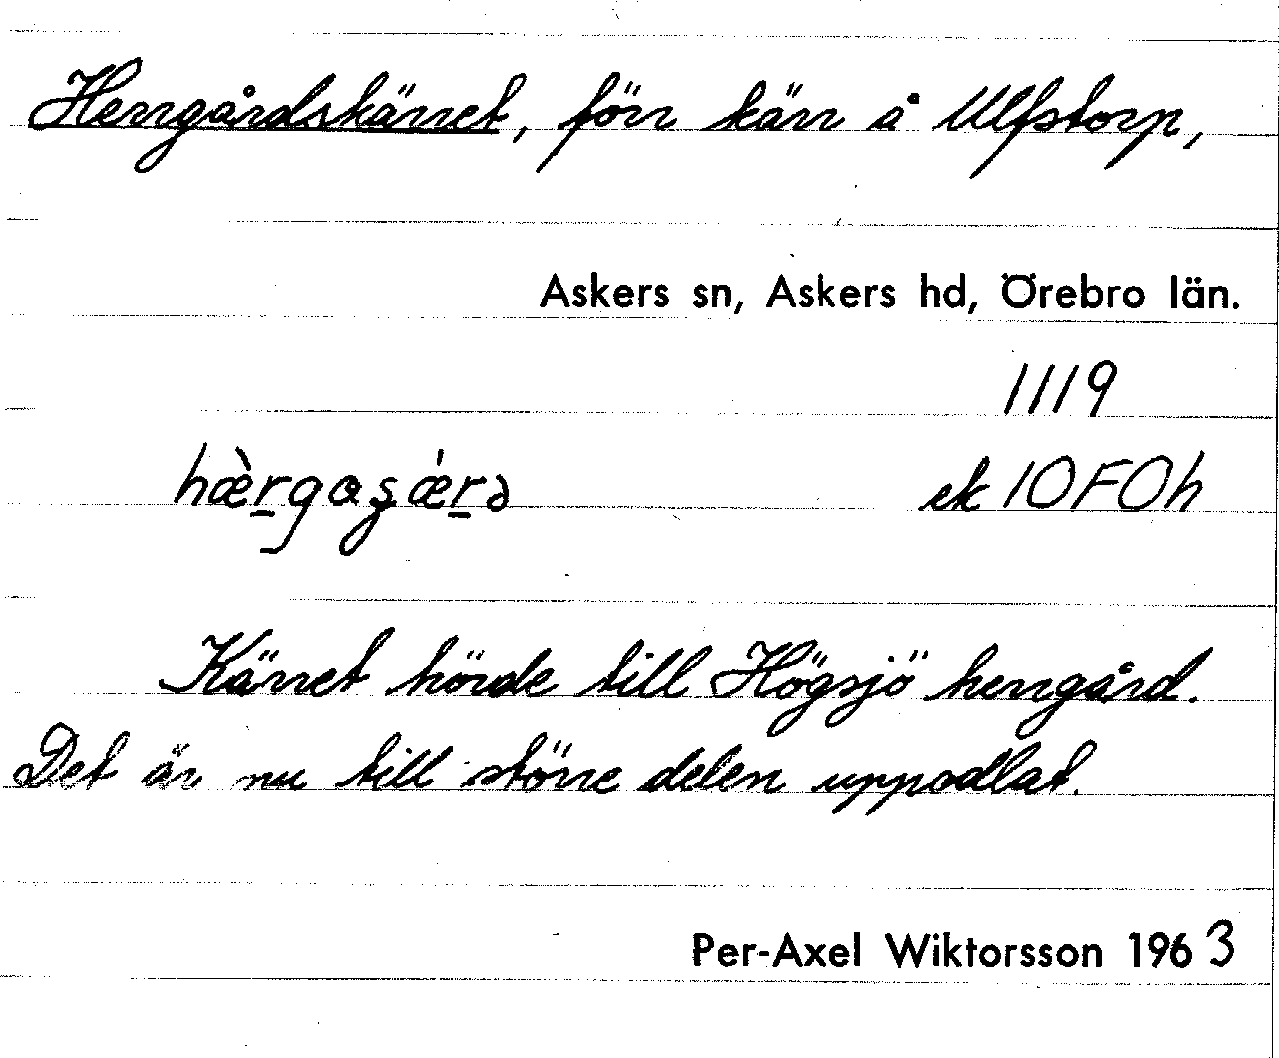 Herrgårdskärret, förr kärr å Ulfstorp,
Askers sn, Askers hd, Örebro län.
1119
hæ̀r̲gaʂǽr̲ə ek 10F0h
Kärret hörde till Högsjö herrgård.
Det är nu till större delen uppodlat.
Per-Axel Wiktorsson 1963